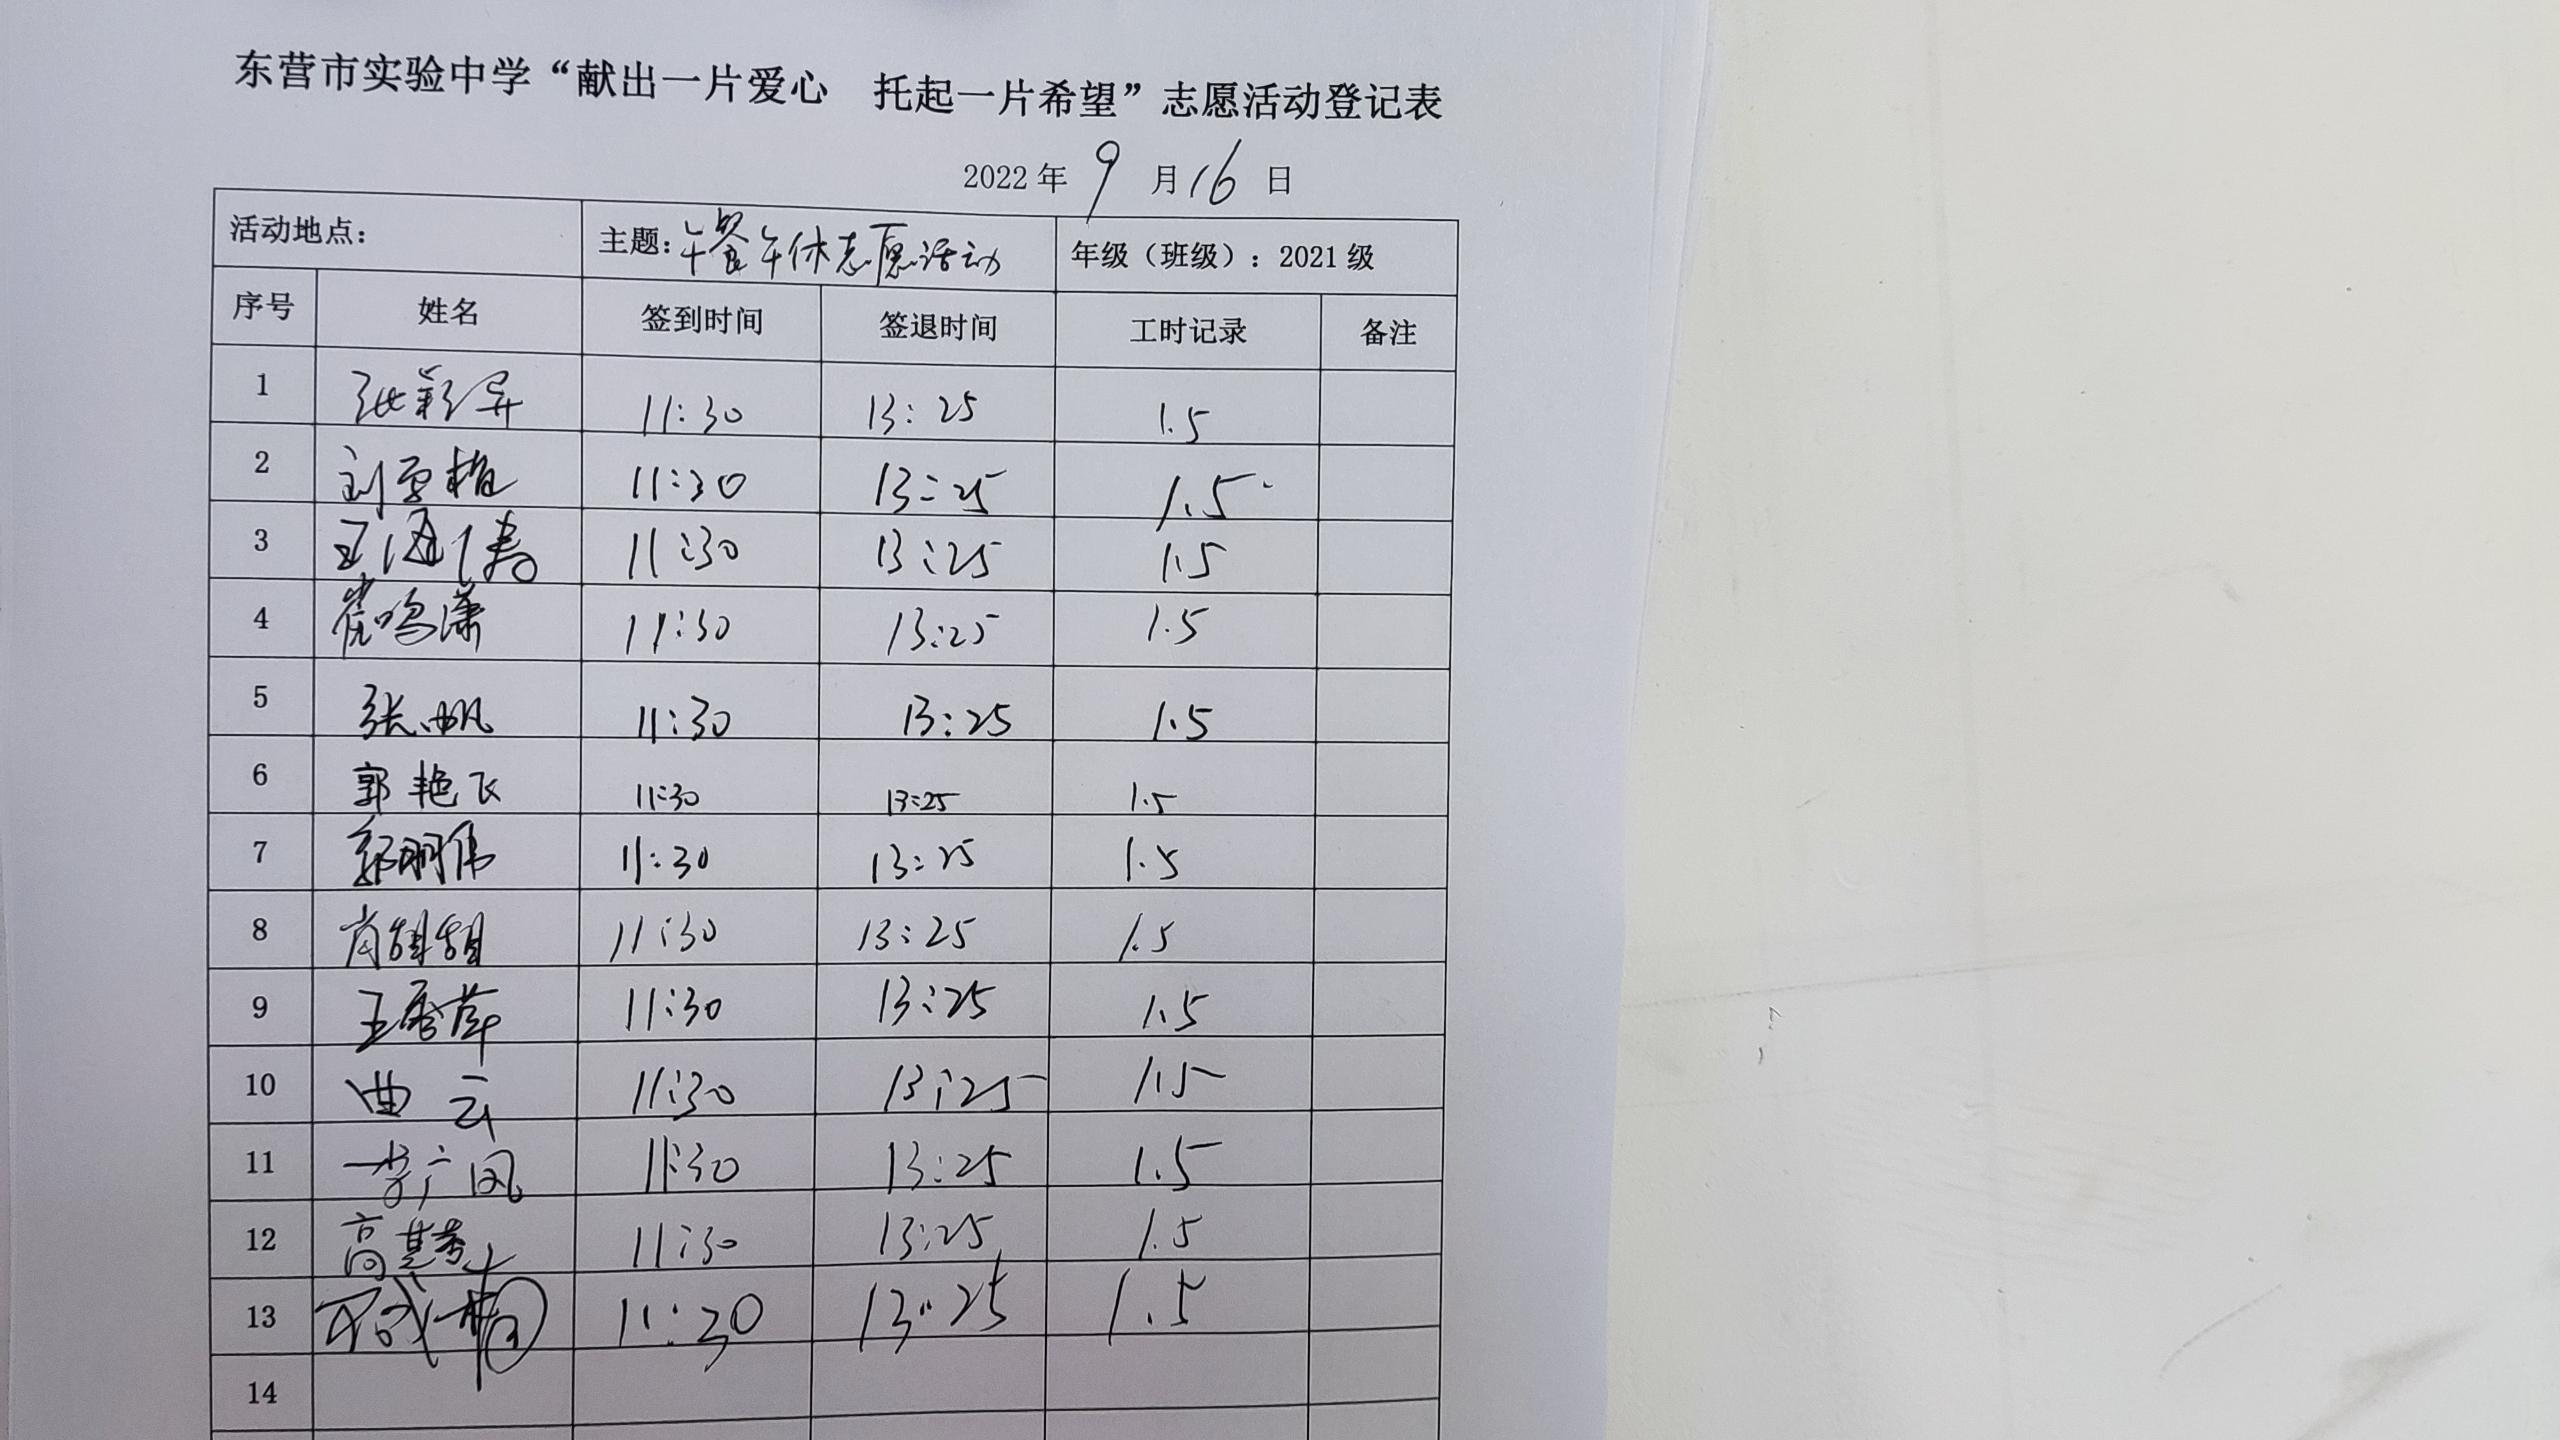 东营市实验中学“献出一片爱心 托起一片希望”志愿活动登记表
2022年9月16日
活动地点： 主题：午餐午休志愿活动 年级（班级）：2021级
序号 姓名 签到时间 签退时间 工时记录 备注
1 11:30 13:25 1.5
2 11:30 13:25 1.5
3 11:30 13:25 1.5
4 崔鸣潇 11:30 13:25 1.5
5 张帆 11:30 13:25 1.5
6 郭艳飞 11:30 13:25 1.5
7 11:30 13:25 1.5
8 11:30 13:25 1.5
9 王秀萍 11:30 13:25 1.5
10 曲云 11:30 13:25 1.5
11 李广凤 11:30 13:25 1.5
12 11:30 13:25 1.5
13 11:30 13:25 1.5
14